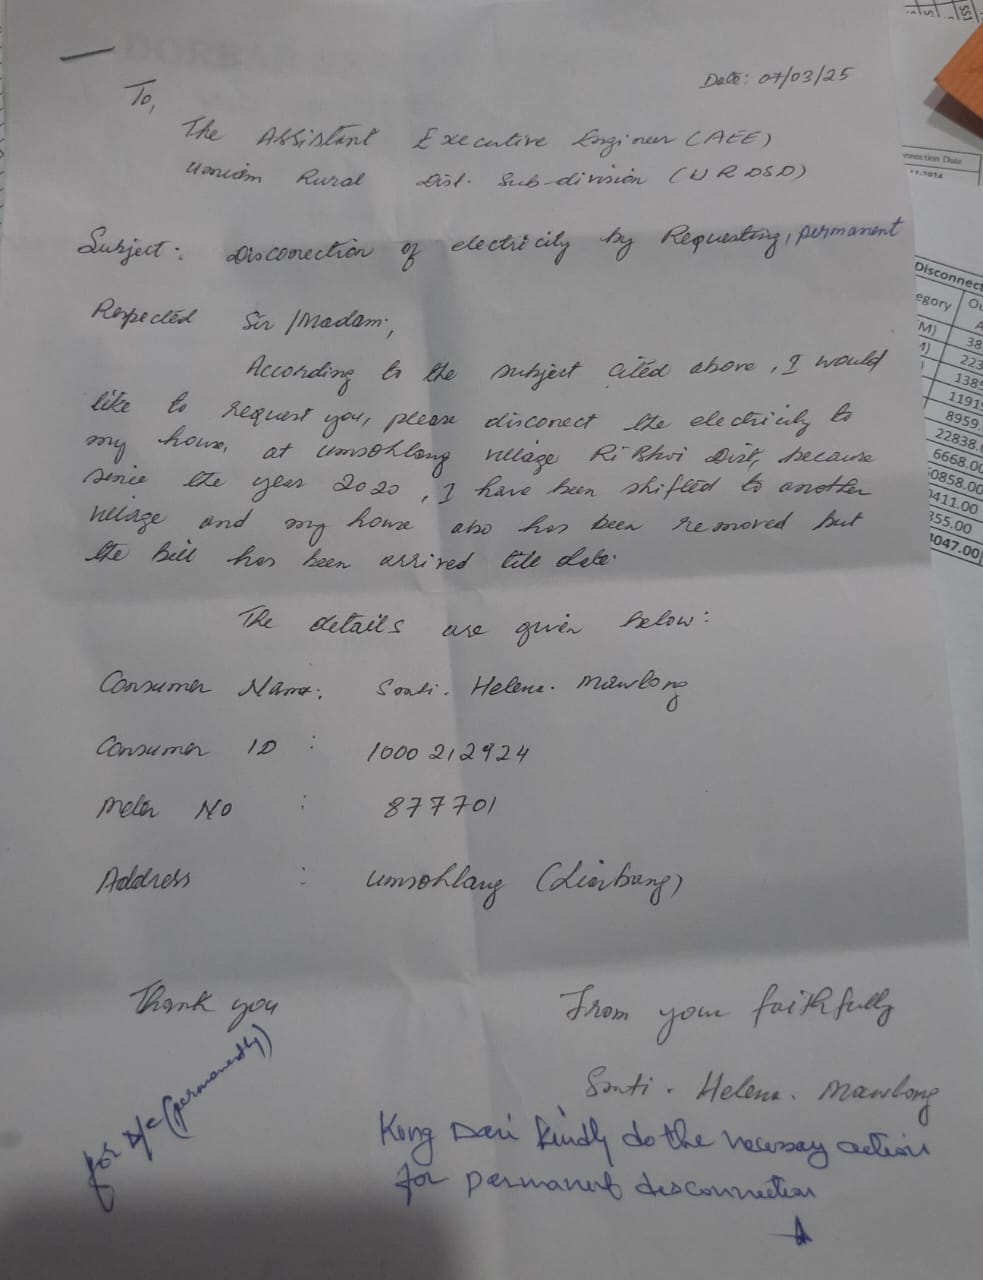 Date: 07/03/25
To,
The Assistant Executive Engineer (AEE)
Umiam Rural Dist. Sub-division (URDSD)
Subject: Disconection of electricity by Requesting, permanent
Respected Sir/Madam,
According to the subject cited above, I would
like to request you, please disconect the electricity to
my house, at Umsohlang village Ri Bhoi Dist, because
since the year 2020, I have been shifted to another
village and my house also has been removed but
the Bill has been arrived till date.
The details are given below:
Consumer Name: Sonti. Helena. Mawlong
Consumer ID : 1000212924
Meter No : 877701
Address : Umsohlang (Liarbang)
Thank you
From your faithfully
Sonti. Helena. Mawlong
for D/C (permanently)
Kong Dari kindly do the necessay action
for permanent disconnection
nnection Date
11.1074
Disconnect
egory
M)
38
223
1389
1191
8959.
22838.0
6668.00
0858.00
0411.00
355.00
1047.00
SS1